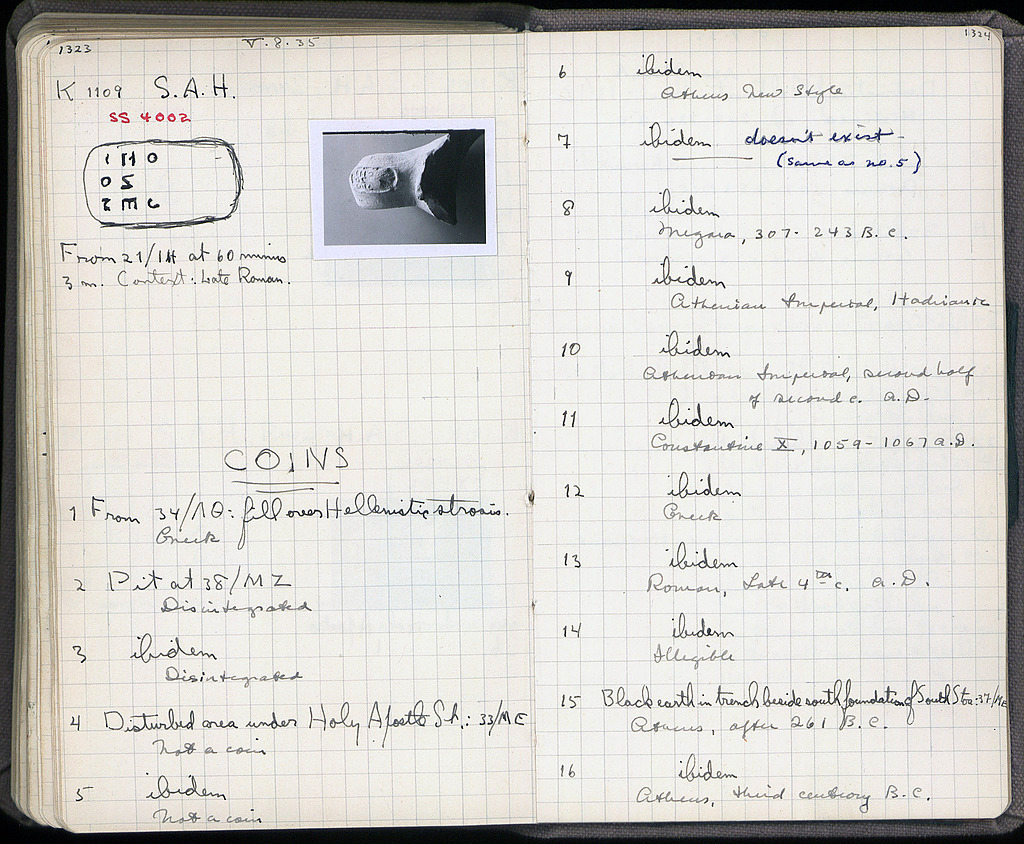 1323
V.8.35
K 1109 S.A.H.
SS 4002
From 21/ΙΗ at 60 minus
3 m. Context: Late Roman.
COINS
1 From 34/ΛΘ: fill over Hellenistic stroses.
Greek
2 Pit at 38/ΜΖ
Disintegrated
3 ibidem
Disintegrated
4 Disturbed area under Holy Apostles St.: 33/ΜΕ
Not a coin
5 ibidem
Not a coin
1324
6 ibidem
Athens New Style
7 ibidem doesn't exist -
(same as no. 5)
8 ibidem
Megara, 307-243 B.C.
9 ibidem
Athenian Imperial, Hadrianic
10 ibidem
Athenian Imperial, second half
of second c. A.D.
11 ibidem
Constantine X, 1059-1067 A.D.
12 ibidem
Greek
13 ibidem
Roman, Late 4th c. A.D.
14 ibidem
Illegible
15 Black earth in trench beside south foundation of South Stoa: 37/ΜΕ
Athens, after 261 B.C.
16 ibidem
Athens, third century B.C.